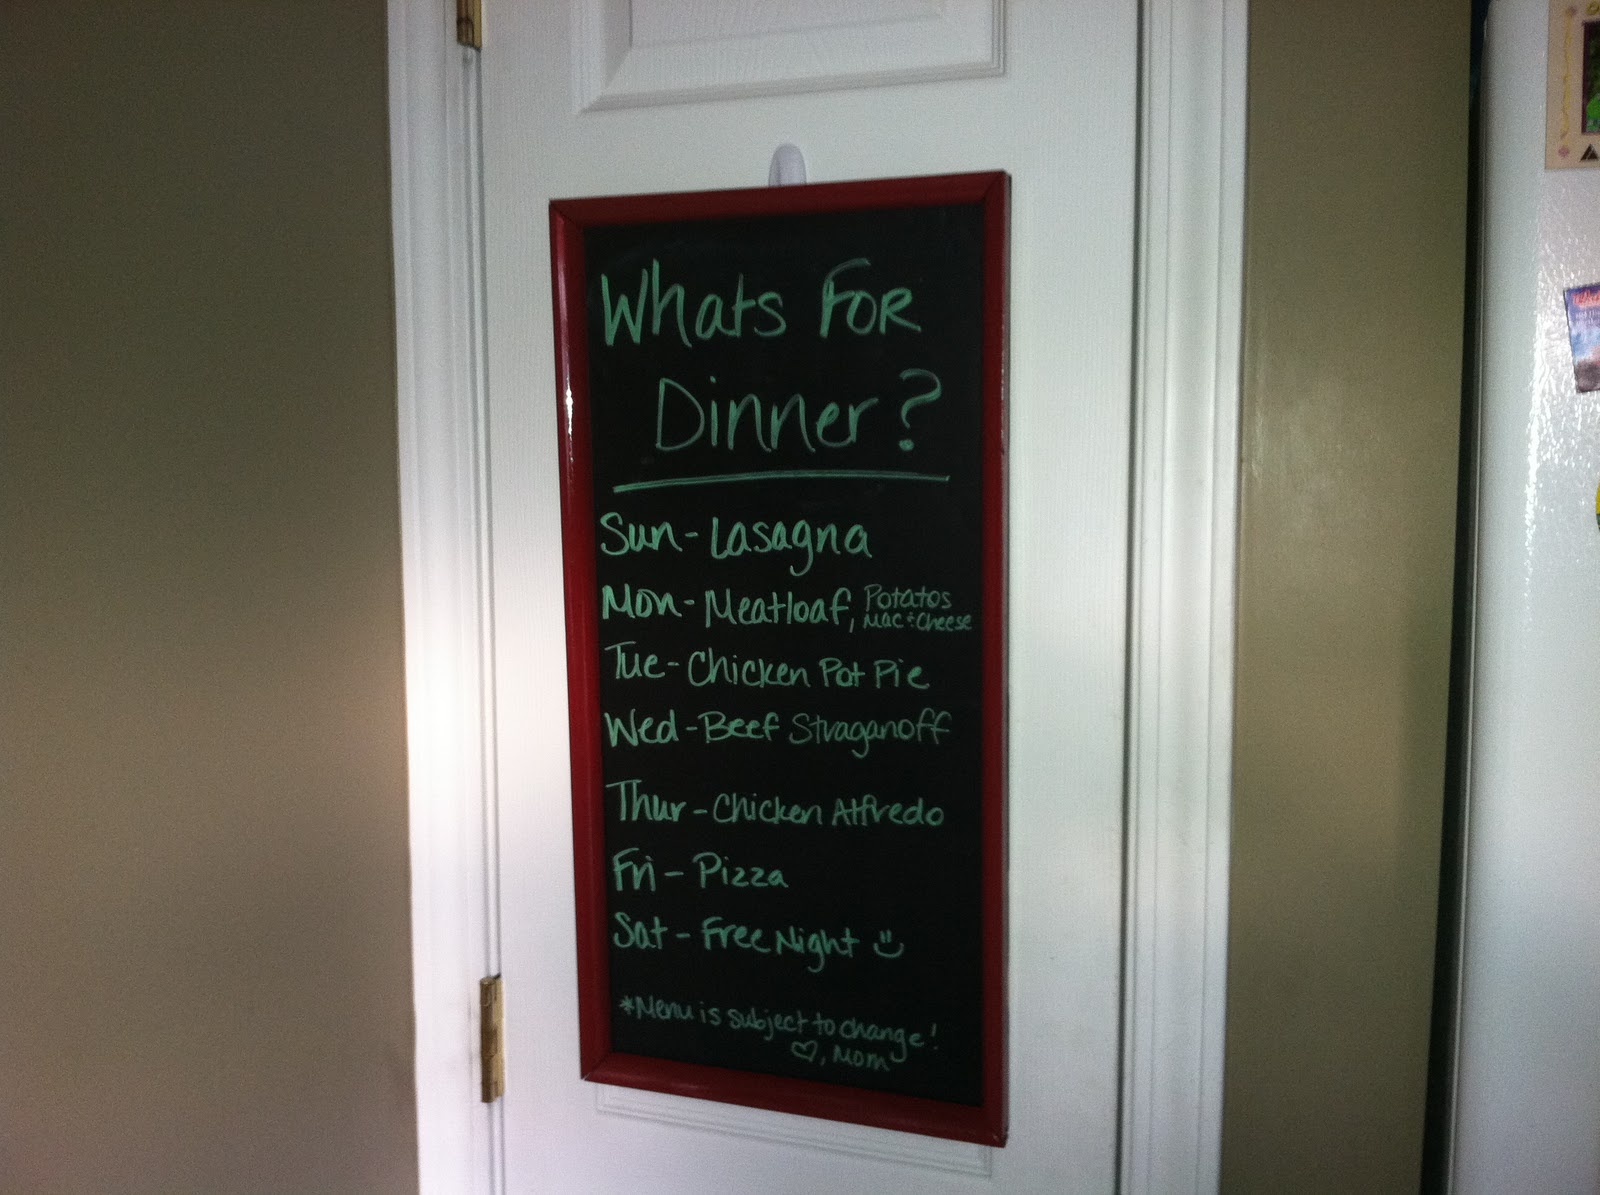 Whats For
Dinner?
Sun - Lasagna
Mon - Meatloaf, Potatos
Mac & Cheese
Tue - Chicken Pot Pie
Wed - Beef Straganoff
Thur - Chicken Alfredo
Fri - Pizza
Sat - Free Night
*Menu is subject to change!
♡, Mom